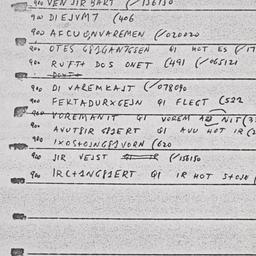 900 VEN JIR BAKT (/136130
900 DIEJVM7 (406
900 AFCUONVAREMEN (/020020
900 OTES G81GANTGSEN 91 HOT ES (/17
900 RUFT+ DOS ONET (491 (/065121
900 DI VAREMKAJT (/078090
900 FEKTADURXGEJN 91 FLEGT (522
900 VOREMANIT 91 VOREM NIT (3
900 AVUTBIR G81ERT 91 AVU HOT IR (2
900 IXOS+OJNG81VORN (620
900 JIR VEJST (/138150
900 IRC+1NG81ERT 91 IR HOT S+OJE